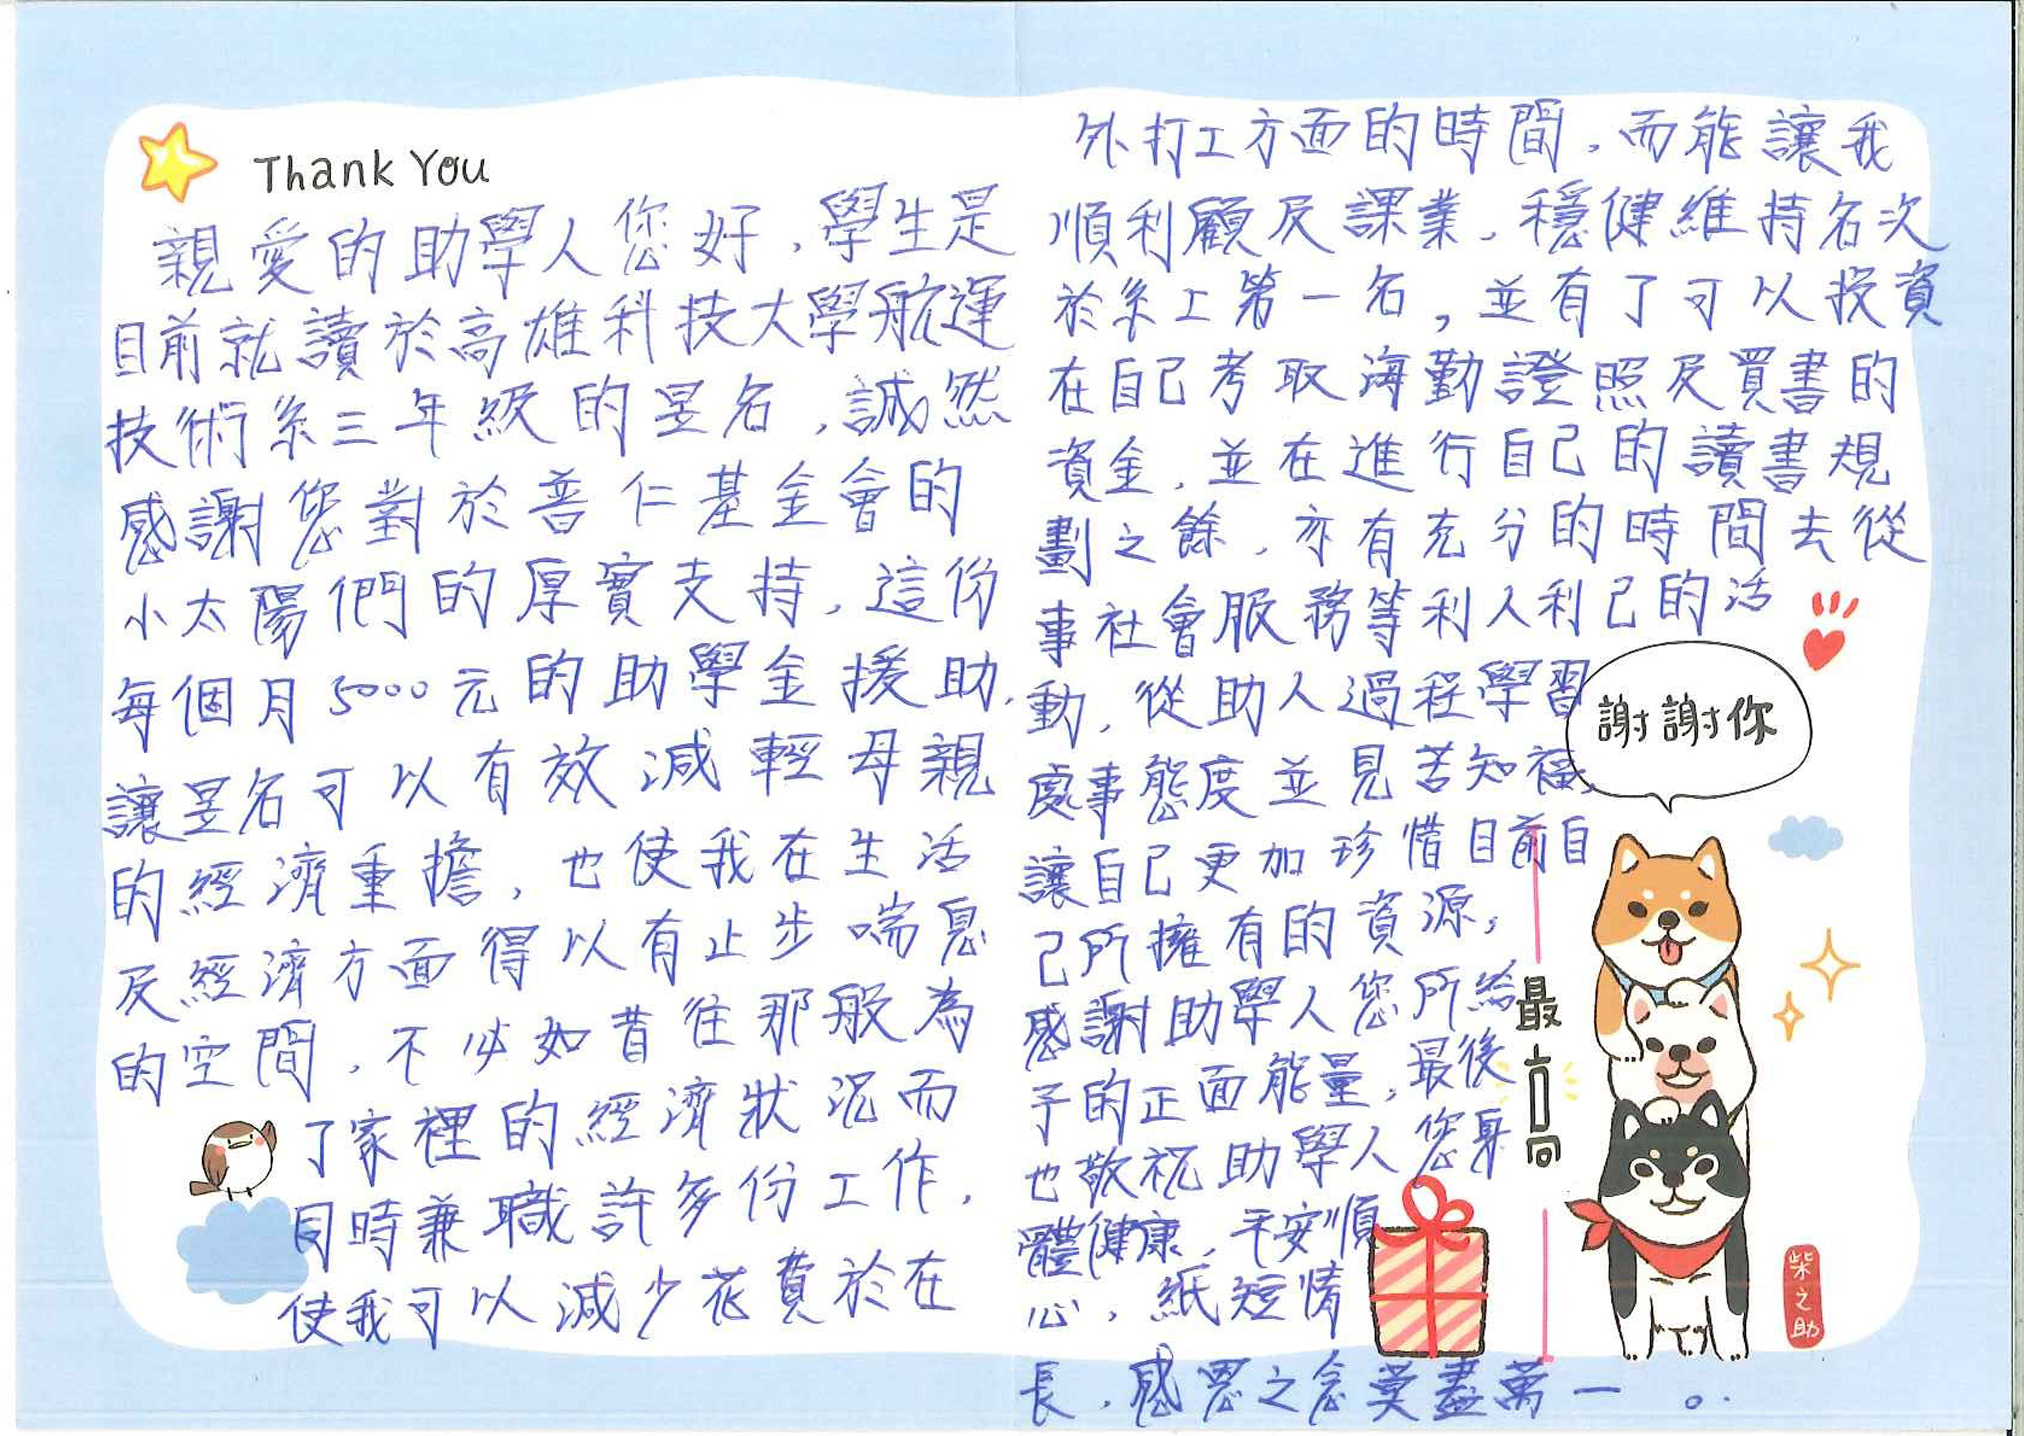 Thank You
親愛的助學人您好,學生是
目前就讀於高雄科技大學航運
技術系三年級的昱名,誠然
感謝您對於普仁基金會的
小太陽們的厚實支持,這份
每個月5000元的助學金援助,
讓昱名可以有效減輕母親
的經濟重擔,也使我在生活
及經濟方面得以有止步喘息
的空間,不必如昔往那般為
了家裡的經濟狀況而
同時兼職許多份工作,
使我可以減少花費於在
外打工方面的時間,而能讓我
順利顧及課業,穩健維持名次
於系上第一名,並有了可以投資
在自己考取海勤證照及買書的
資金,並在進行自己的讀書規
劃之餘,亦有充分的時間去從
事社會服務等利人利己的活
動,從助人過程學習
處事態度並見苦知福,
讓自己更加珍惜目前自
己所擁有的資源,
感謝助學人您所給
予的正面能量,最後
也敬祝助學人您身
體健康,平安順
心,紙短情
長,感恩之念莫盡萬一。
謝謝你
最高
柴之助